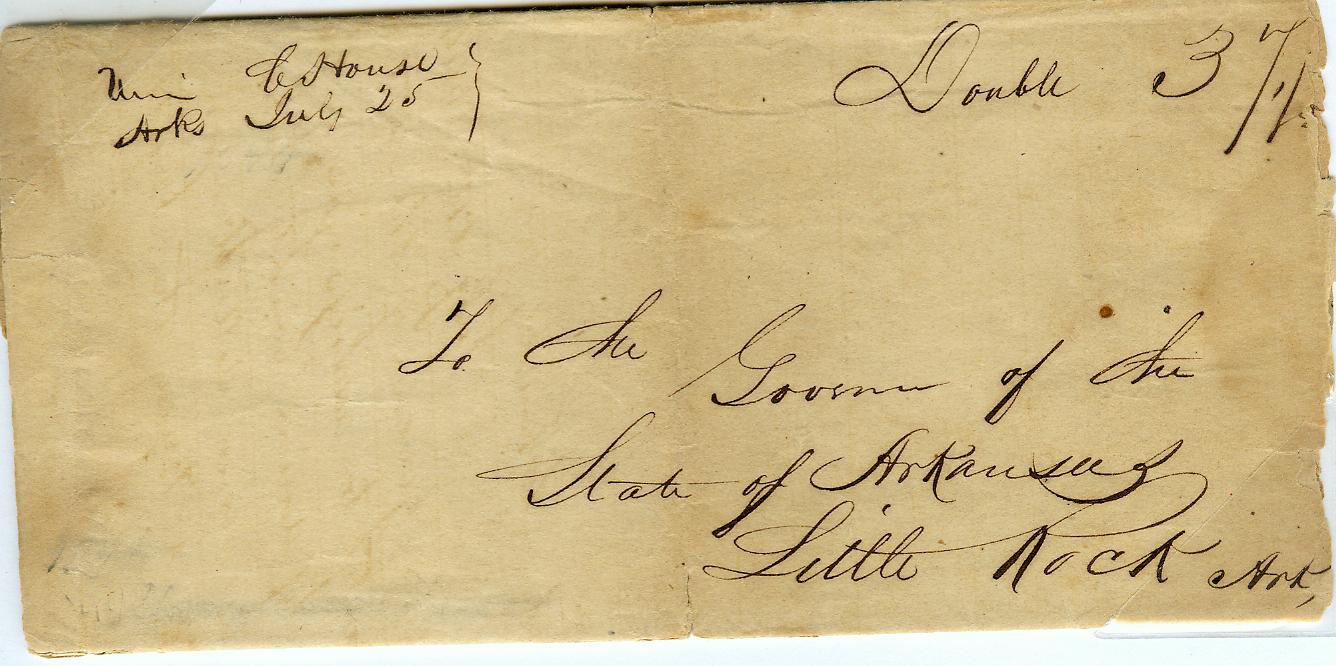 C House
Arks July 25
Double 37½
To the
Governor of the
State of Arkansas
Little Rock Ark,